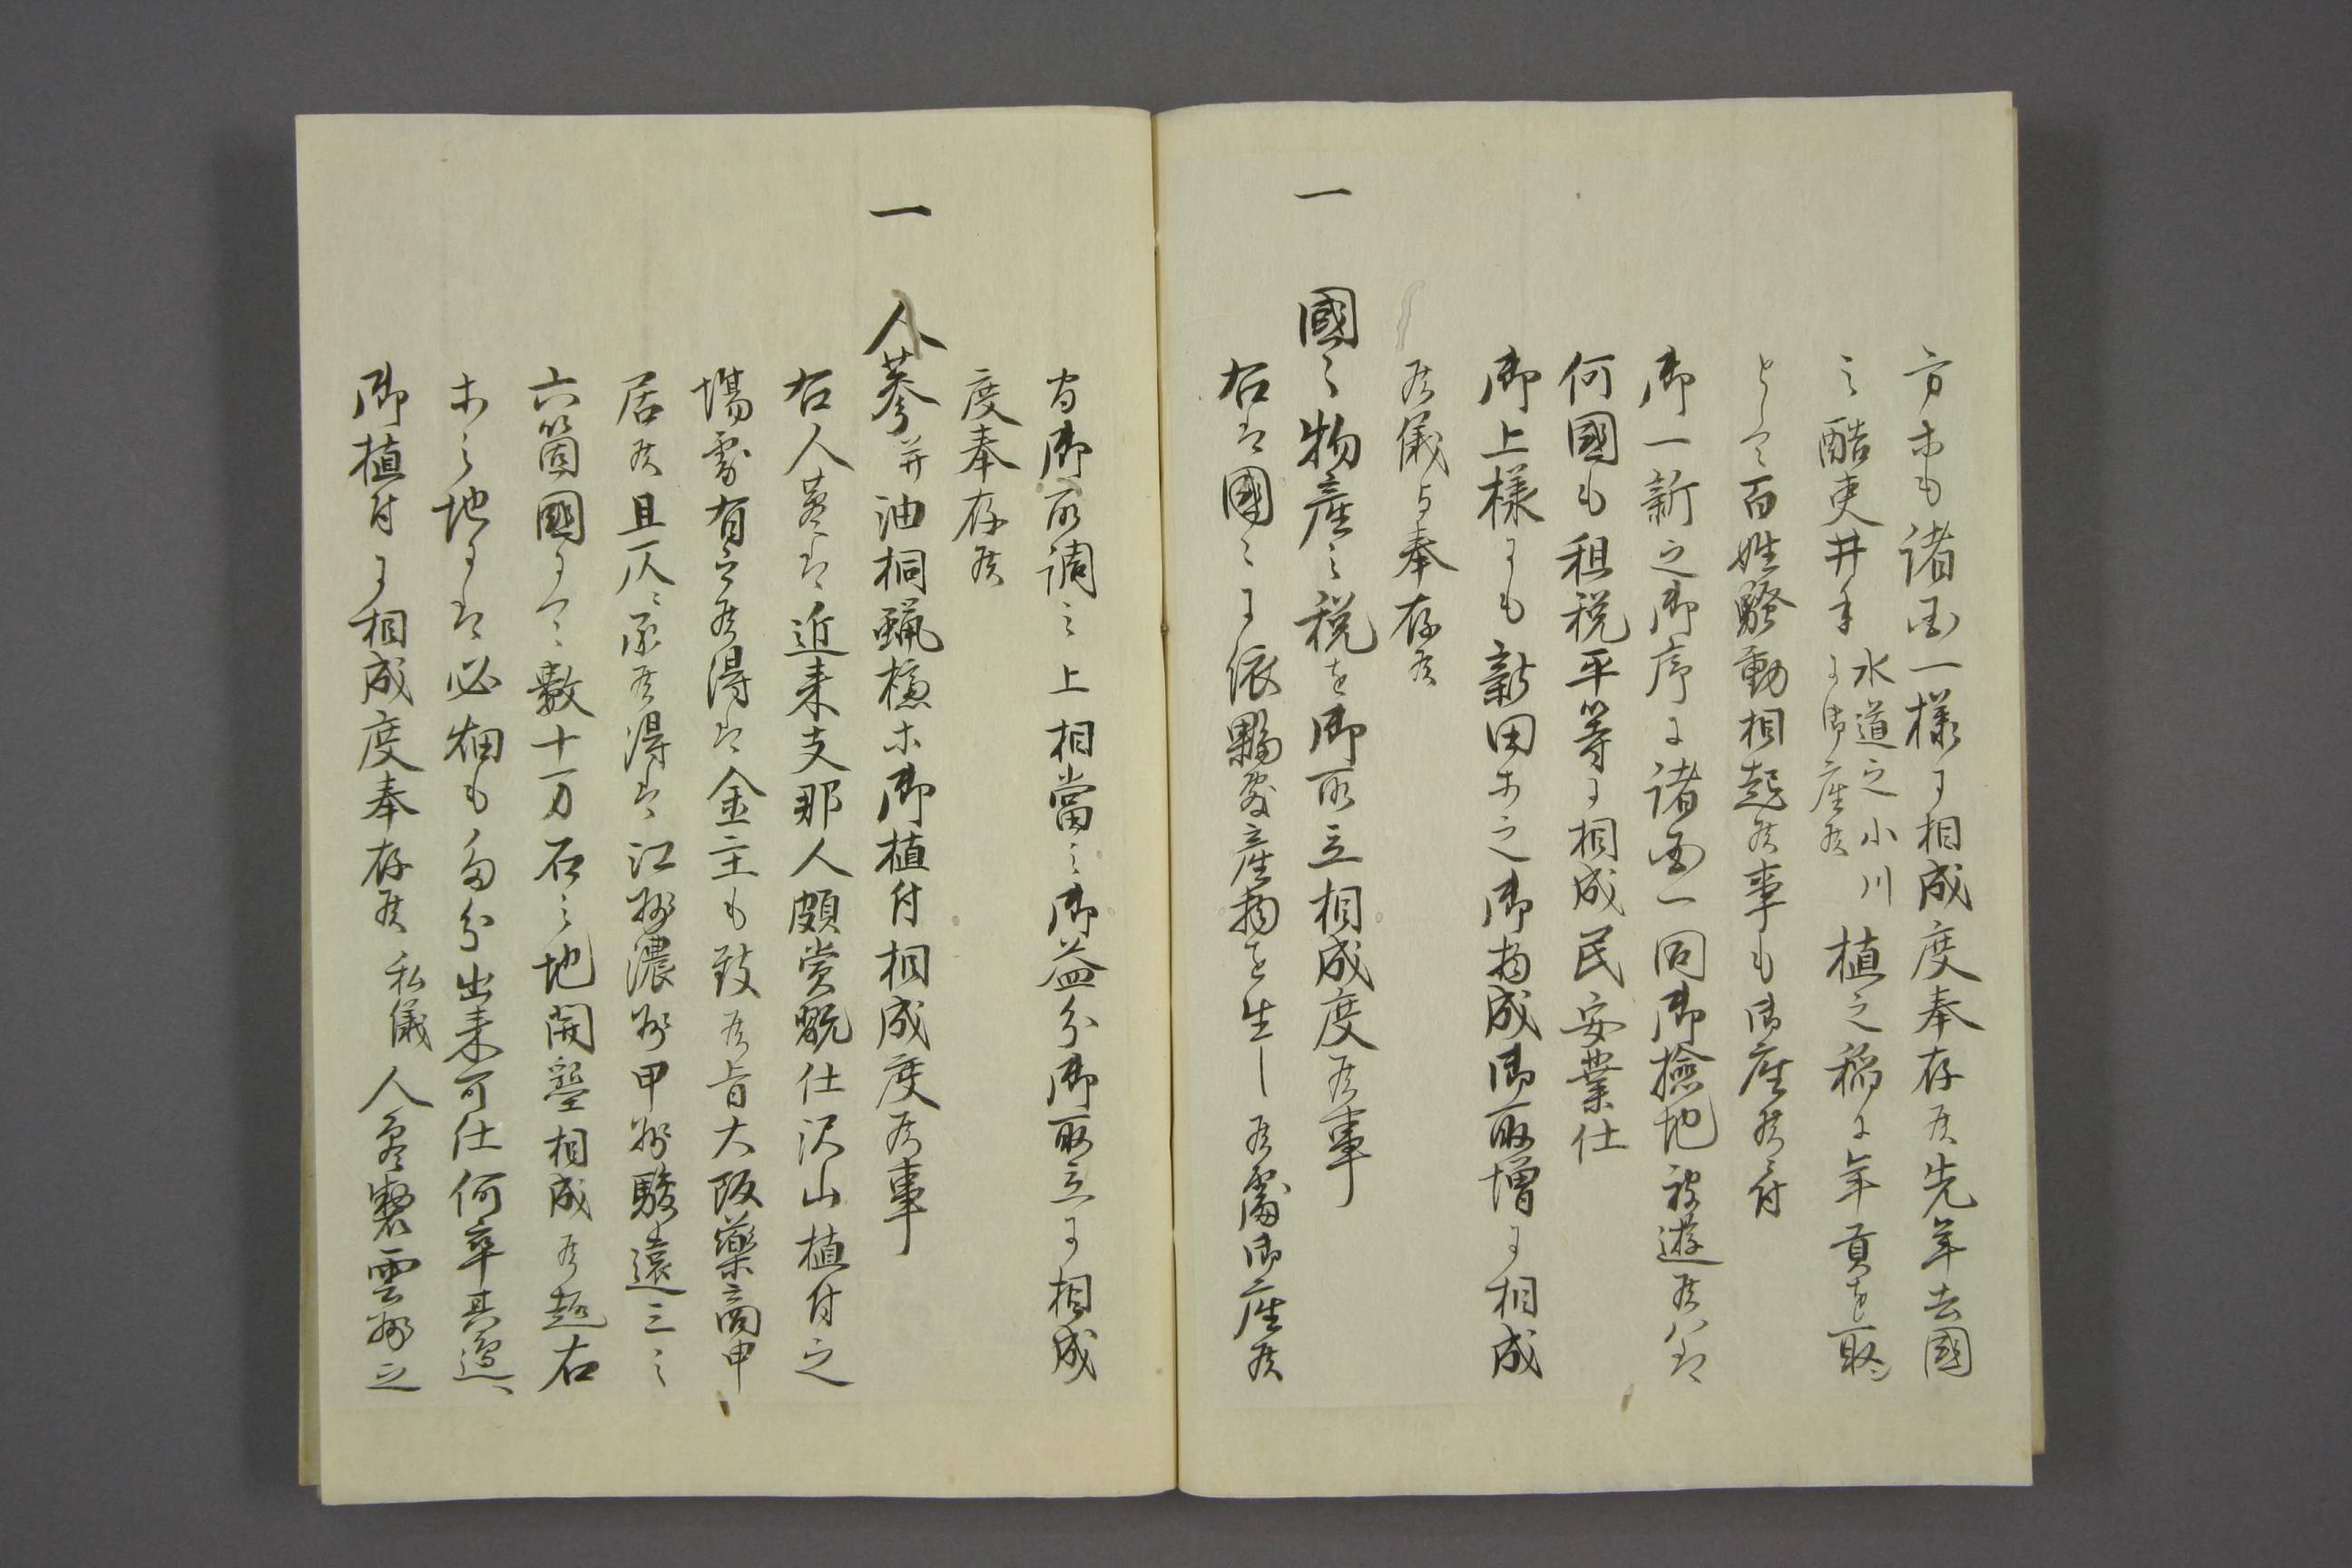 方ホも諸国一様ニ相成度奉存候先年去國
之酷吏井手水道之小川ニ御座候植之稲ニ年貢を取ン
として百姓騒動相起候事も御座候ニ付
御一新之御序ニ諸国一同御撿地被遊候ハヽ
何國も租税平等ニ相成民安業仕
御上様ニも新田ホ之御物成御取増ニ相成
候儀与奉存候
一 國之物産之税を御取立相成度候事
右者國之ニ依夥敷産物を生し候處御座候
間御取調之上相當之御益分御取立ニ相成
度奉存候
一 人蔘并油桐蝋櫨ホ御植付相成度候事
右人蔘者近来支那人頗賞翫仕沢山植付之
場處有之候得者金主も致候旨大阪藥商申
居候且又承候得者江州濃州甲州駿遠三之
六箇國ニて數十万石之地開墾相成候趣右
ホ之地ニ者必畑も多分出来可仕何卒其邉へ
御植付ニ相成度奉存候私儀人蔘製雲州之